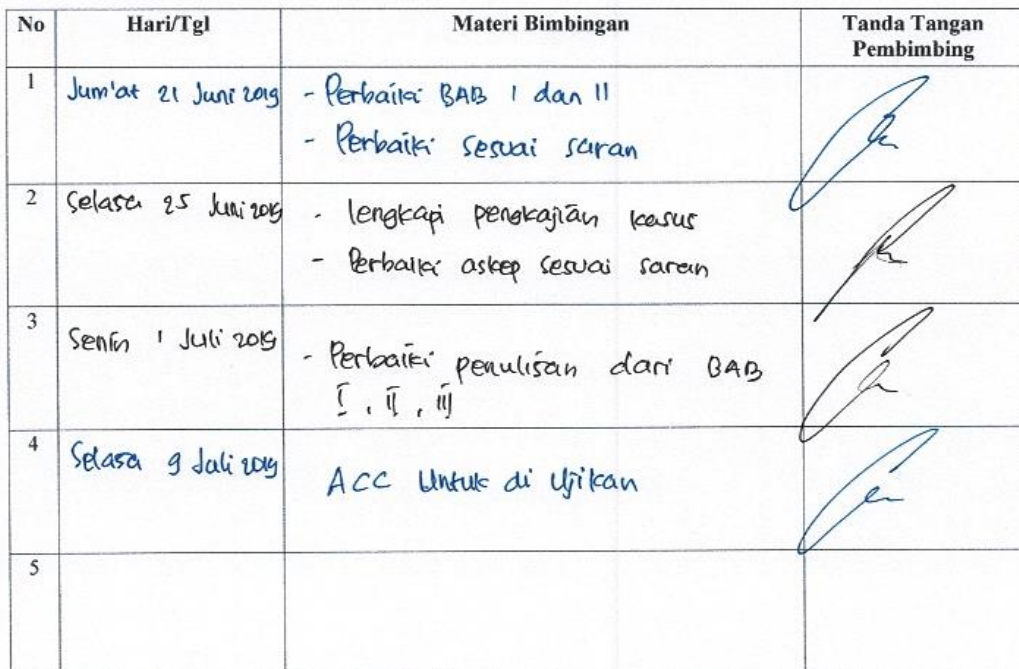 No Hari/Tgl Materi Bimbingan Tanda Tangan
Pembimbing
1 Jum'at 21 Juni 2019 - Perbaiki BAB I dan II
- Perbaiki sesuai saran
2 Selasa 25 Juni 2019 - lengkapi pengkajian kasus
- Perbaiki askep sesuai saran
3 Senin 1 Juli 2019 - Perbaiki penulisan dari BAB
I, II, III
4 Selasa 9 Juli 2019 ACC Untuk di Ujikan
5